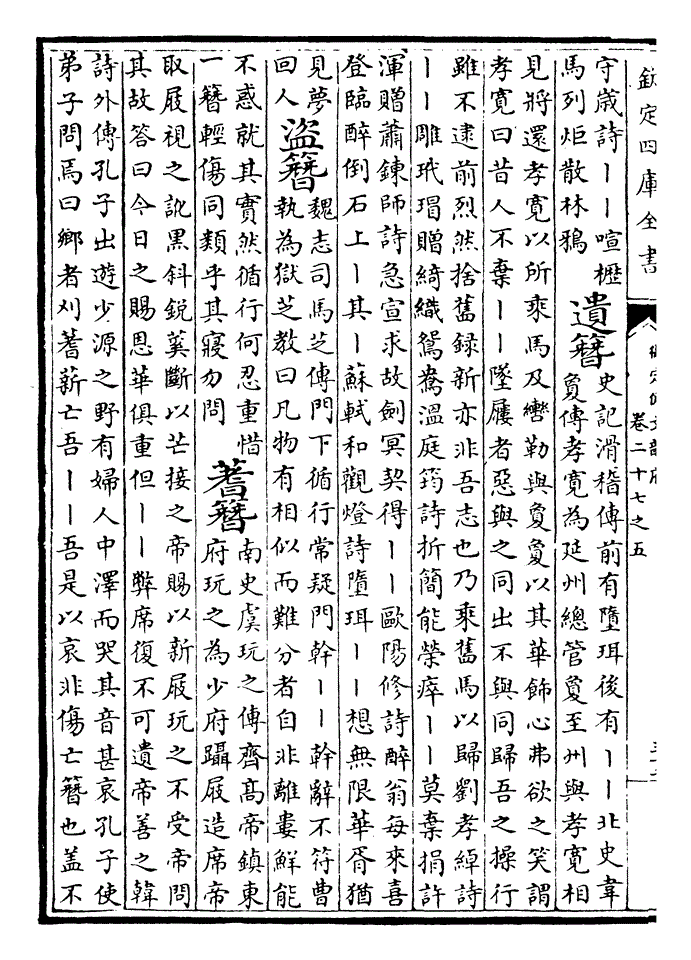 欽定四庫全書
御定佩文韻府
卷二十七之五
守歲詩｜｜喧櫪
馬列炬散林鴉
遺簪
史記滑稽傳前有墮珥後有｜｜北史韋
夐傳孝寬為延州總管夐至州與孝寬相
見將還孝寬以所乘馬及轡勒與夐夐以其華飾心弗欲之笑謂
孝寬曰昔人不棄｜｜墜屨者惡與之同出不與同歸吾之操行
雖不逮前烈然捨舊録新亦非吾志也乃乘舊馬以歸劉孝綽詩
｜｜雕玳瑁贈綺織鴛鴦溫庭筠詩折簡能榮瘁｜｜莫棄捐許
渾贈蕭鍊師詩急宣求故劍冥契得｜｜歐陽修詩醉翁每來喜
登臨醉倒石上｜其｜蘇軾和觀燈詩墮珥｜｜想無限華胥猶
見夢
回人
盜簪
魏志司馬芝傳門下循行常疑門幹｜｜幹辭不符曹
執為獄芝教曰凡物有相似而難分者自非離婁鮮能
不惑就其實然循行何忍重惜
一簪輕傷同類乎其寢勿問
蓍簪
南史虞玩之傳齊髙帝鎮東
府玩之為少府躡屐造席帝
取屐視之訛黑斜銳蒵斷以芒接之帝賜以新屐玩之不受帝問
其故答曰今日之賜恩華俱重但｜｜弊席復不可遺帝善之韓
詩外傳孔子出遊少源之野有婦人中澤而哭其音甚哀孔子使
弟子問焉曰鄉者刈蓍薪亡吾｜｜吾是以哀非傷亡簪也盖不